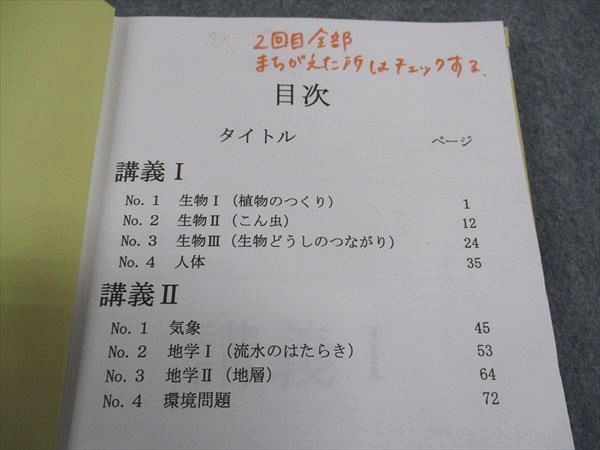 2回目全部
まちがえた所はチェックする.
目次
タイトル ページ
講義Ⅰ
No. 1 生物Ⅰ（植物のつくり） 1
No. 2 生物Ⅱ（こん虫） 12
No. 3 生物Ⅲ（生物どうしのつながり） 24
No. 4 人体 35
講義Ⅱ
No. 1 気象 45
No. 2 地学Ⅰ（流水のはたらき） 53
No. 3 地学Ⅱ（地層） 64
No. 4 環境問題 72